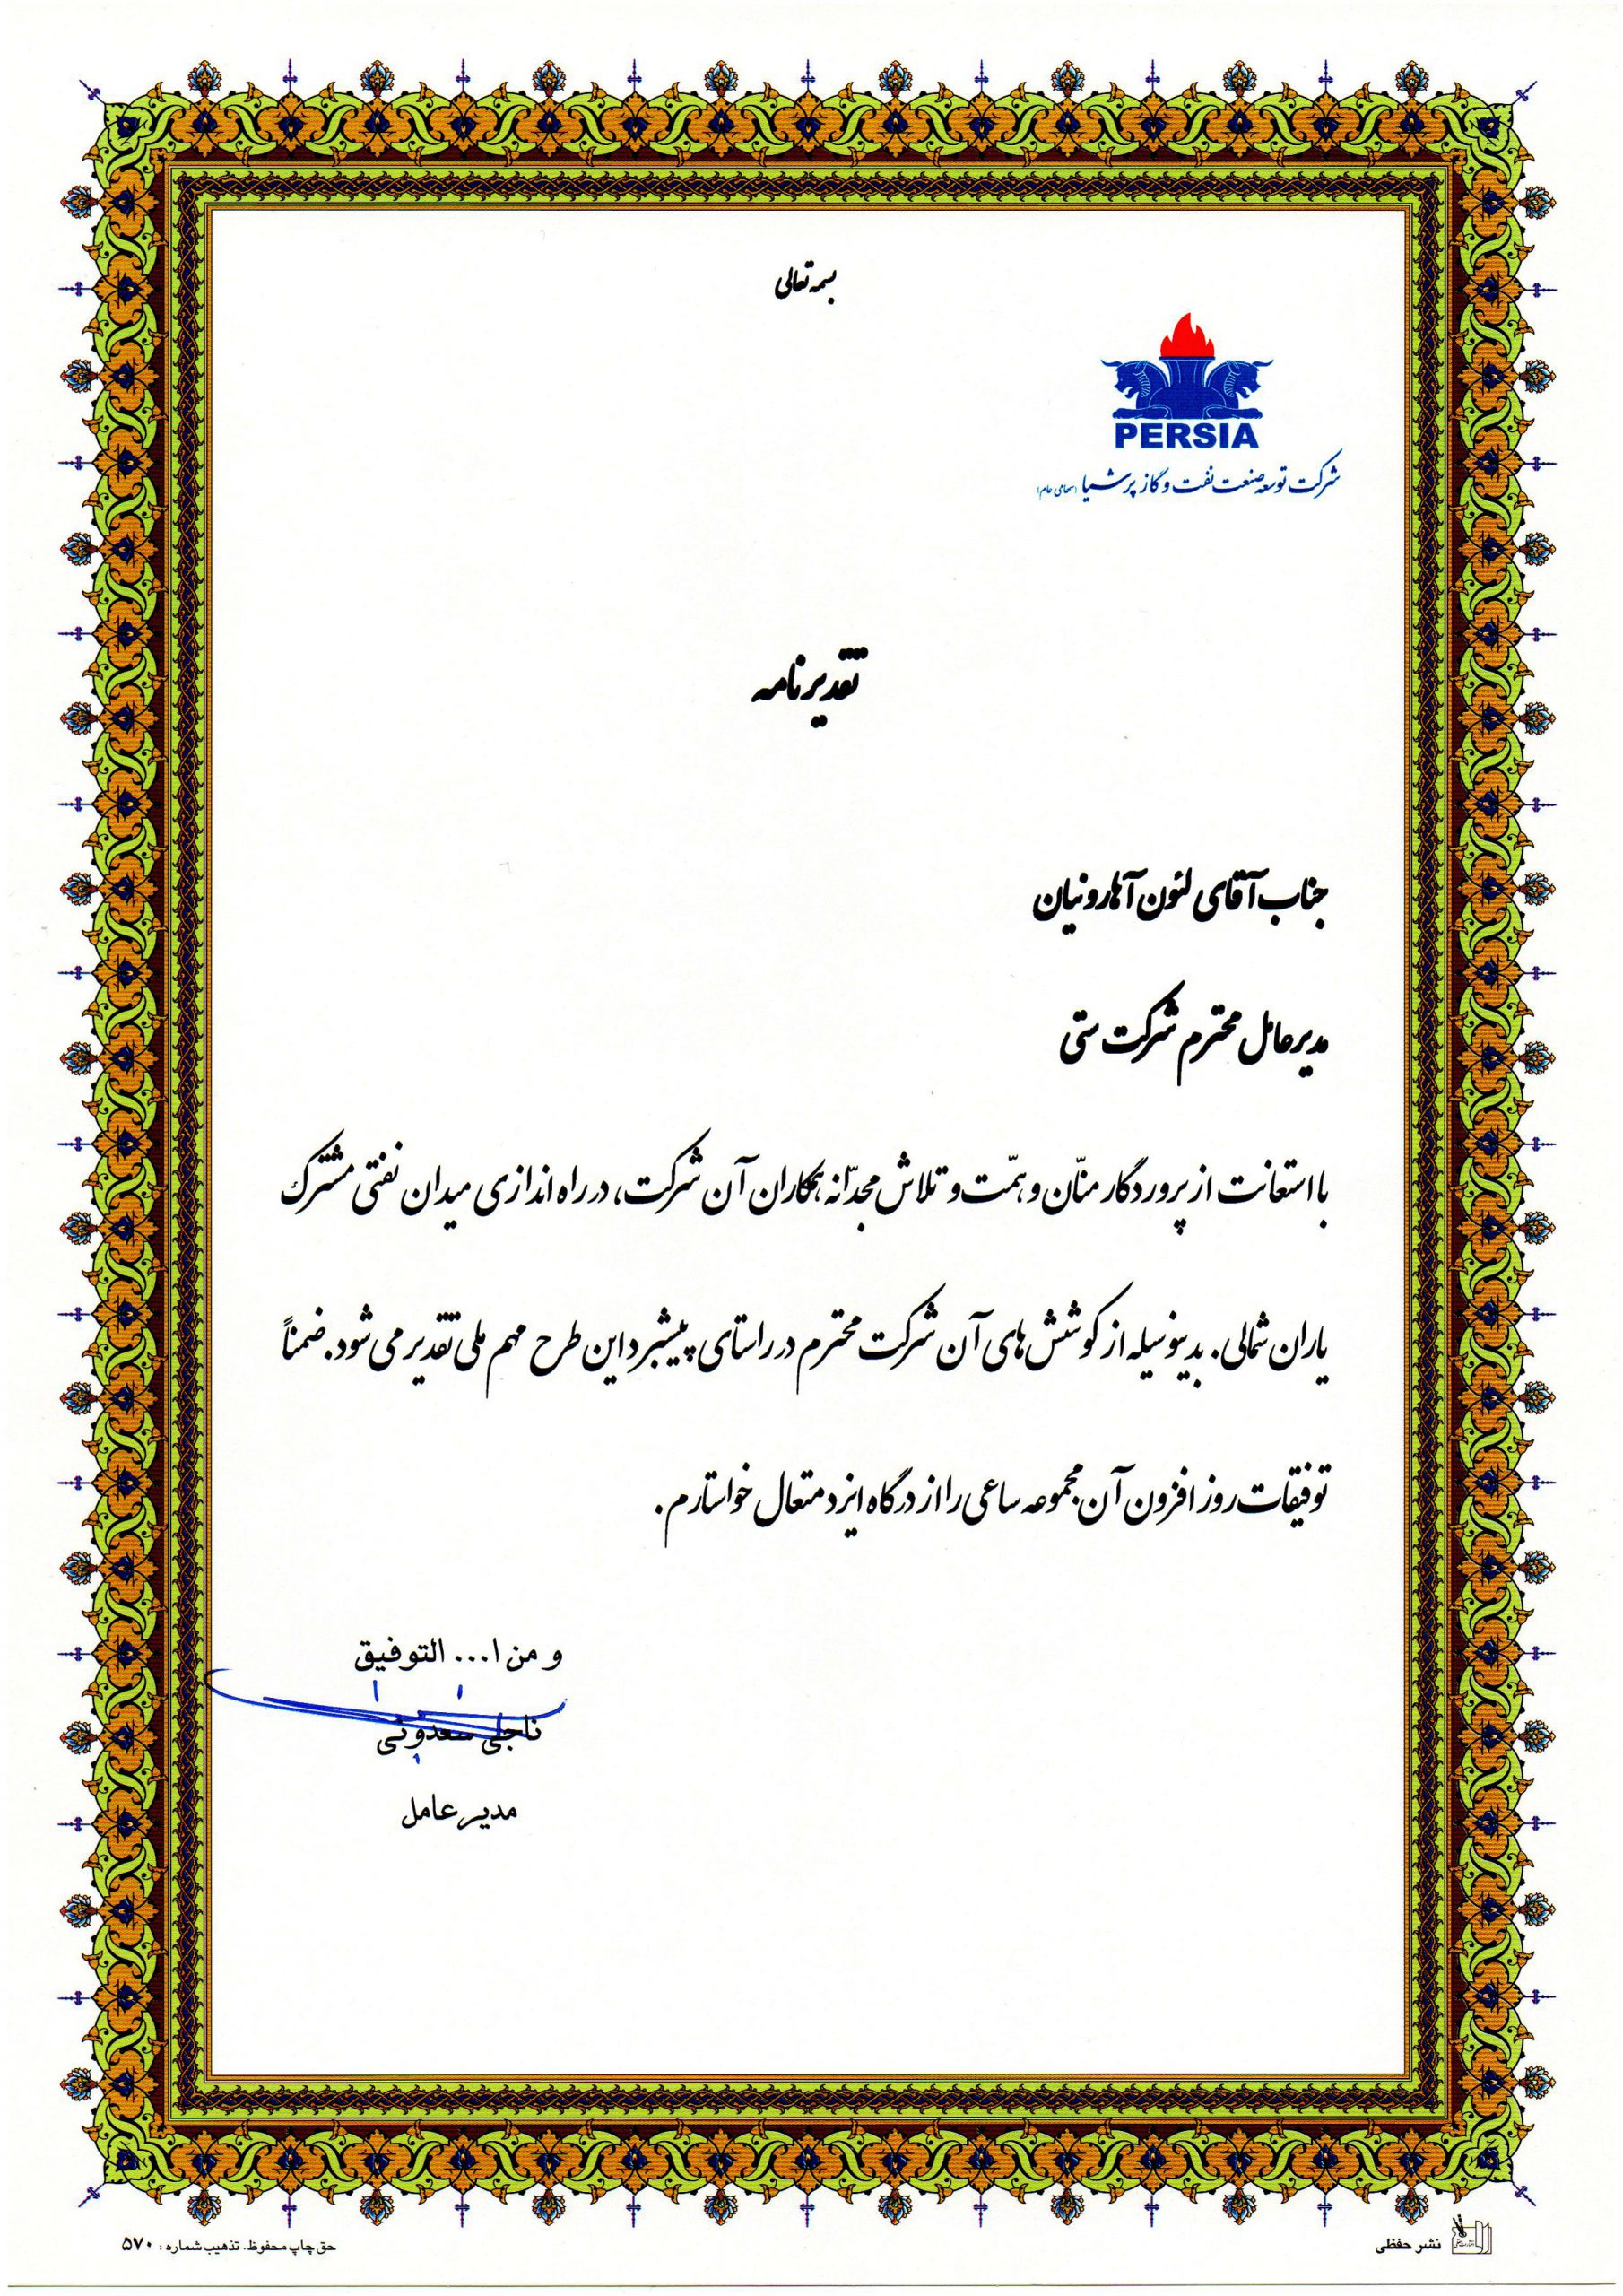 بسمه تعالی
PERSIA
شرکت توسعه صنعت نفت و گاز پرشیا (سهامی عام)
تقدیرنامه
جناب آقای لئون آهارونیان
مدیرعامل محترم شرکت ستی
با استعانت از پروردگار منّان و همّت و تلاش مجدّانه همکاران آن شرکت، در راه اندازی میدان نفتی مشترک
یاران شمالی. بدینوسیله از کوشش های آن شرکت محترم در راستای پیشبرد این طرح مهم ملی تقدیر می شود. ضمناً
توفیقات روز افزون آن مجموعه ساعی را از درگاه ایزد متعال خواستارم.
و من ا... التوفیق
ناجی سعدونی
مدیرعامل
نشر حفظی
حق چاپ محفوظ. تذهیب شماره : ۵۷۰